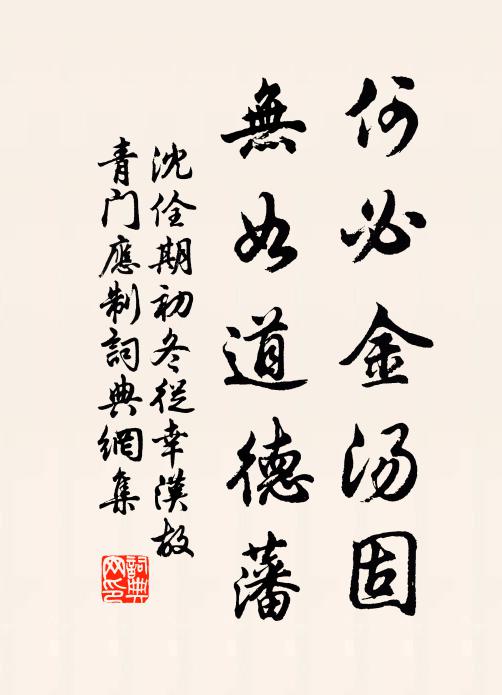 何必金汤固
無如道德藩
沈佺期初冬從幸漢故
青门應制詞典網集
詞典网印